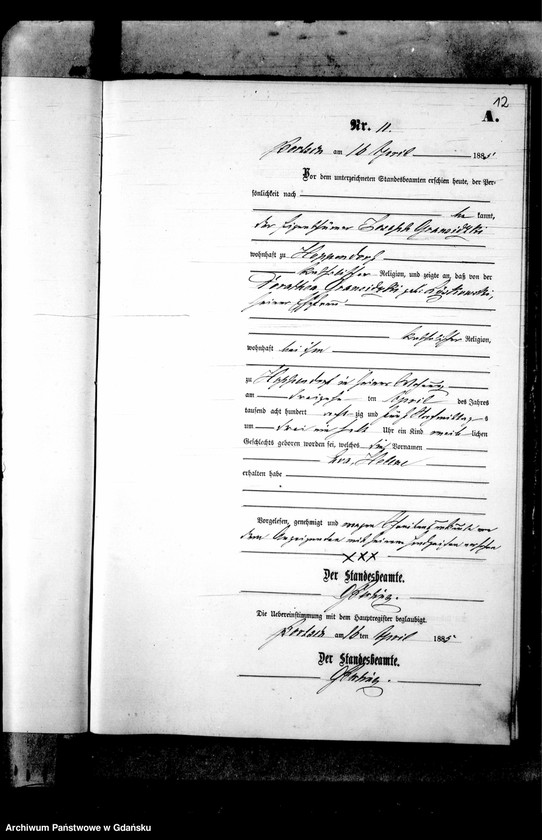 12
A.
Nr. 11.
am 16 April 1885
Vor dem unterzeichneten Standesbeamten erschien heute, der Per-
sönlichkeit nach
be kannt,
der Eigenthümer Joseph
wohnhaft zu Heppendorf
katholischer Religion, und zeigte an, daß von der
Dorothea geb.
seiner Ehefrau
katholischer Religion,
wohnhaft bei ihm
zu Heppendorf in seiner Wohnung
am ten April des Jahres
tausend acht hundert acht zig und fünf Nachmittag s
um drei ein halb Uhr ein Kind weib lichen
Geschlechts geboren worden sei, welches Vornamen
Eva, Helene
erhalten habe
Vorgelesen, genehmigt und wegen Schreibensunkunde von
dem Anzeigenden mit seinem Handzeichen versehen
XXX
Der Standesbeamte.
Die Uebereinstimmung mit dem Hauptregister beglaubigt.
am 16 ten April 1885
Der Standesbeamte.
Archiwum Państwowe w Gdańsku